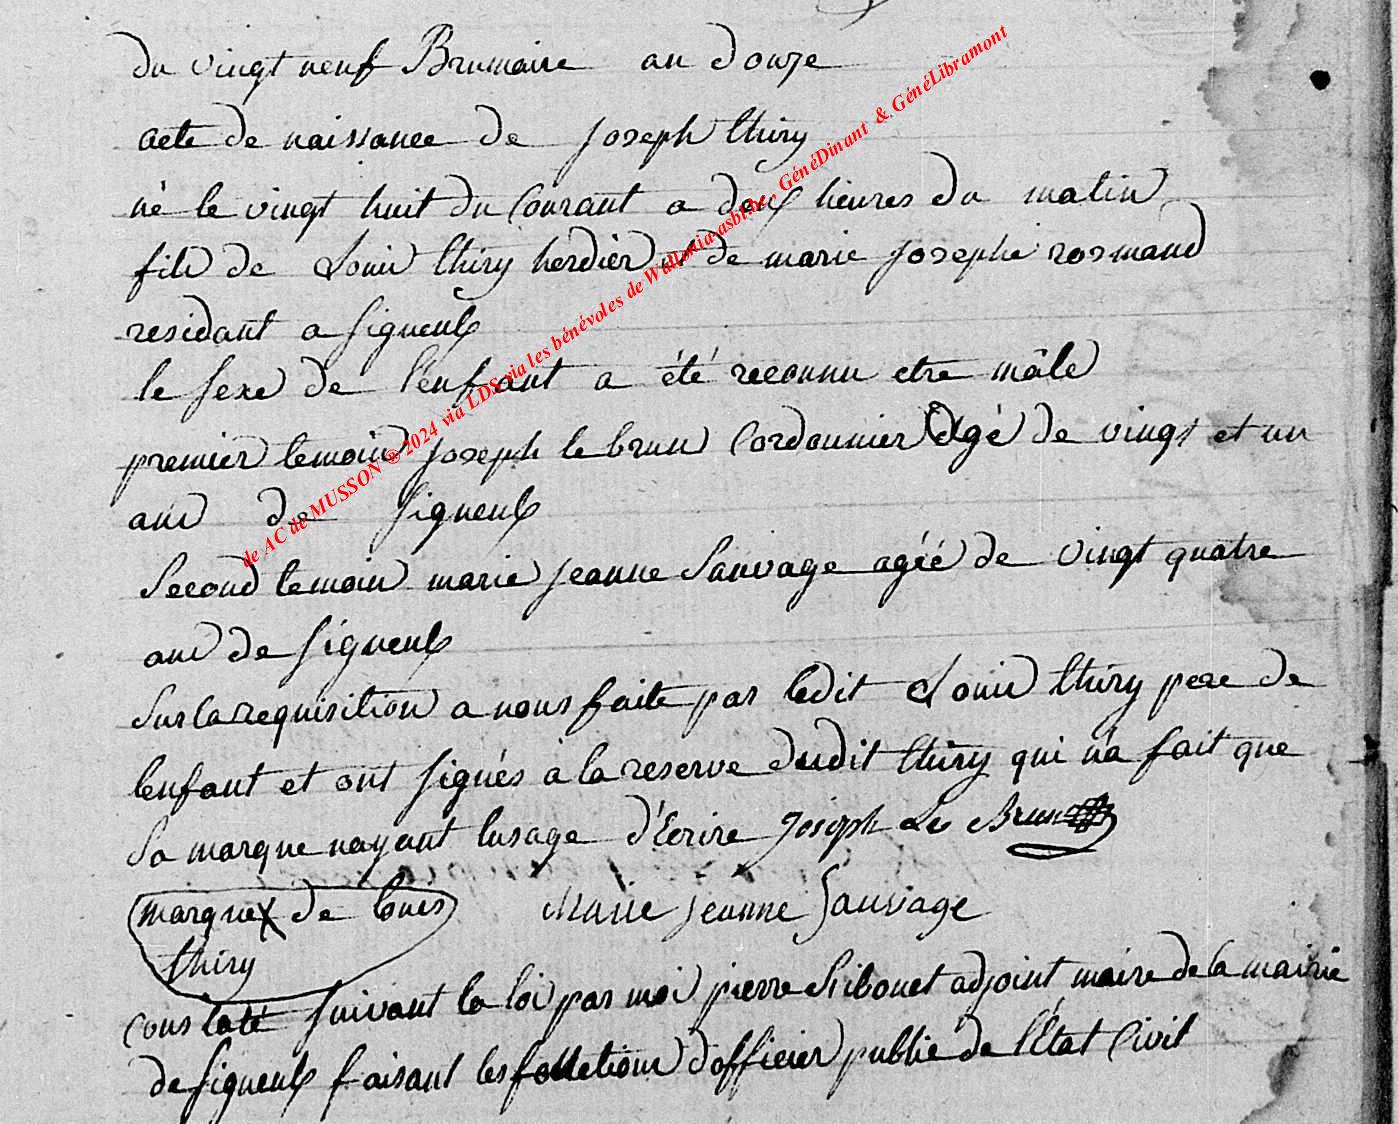 du vingt neuf Brumaire an douze
acte de naissance de joseph thiry
né le vingt huit du Courant a deux heures du matin
fils de Louis thiry herdier et de marie josephe rosmand
residant a signeulx
le sexe de l'enfant a été reconnu etre mâle
premier temoin joseph le brun Cordonnier agé de vingt et un
ans de signeulx
Second temoin marie jeanne Sauvage agéé de vingt quatre
ans de signeulx
Sur la requisition a nous faite par ledit Louis thiry pere de
lenfant et ont signés à la reserve dudit thiry qui n'a fait que
Sa marque nayant lusage d'Ecrire Joseph Le Brun
marque X de louis Marie jeanne Sauvage
thiry
constaté suivant la loi par moi pierre adjoint maire de la mairie
de signeulx faisant les fonctions d'officier public de l'État Civil
de AC de MUSSON ® 2024 via LDS via les bénévoles de Wallonia-asbl.be, GénéDinant & GénéLibramont